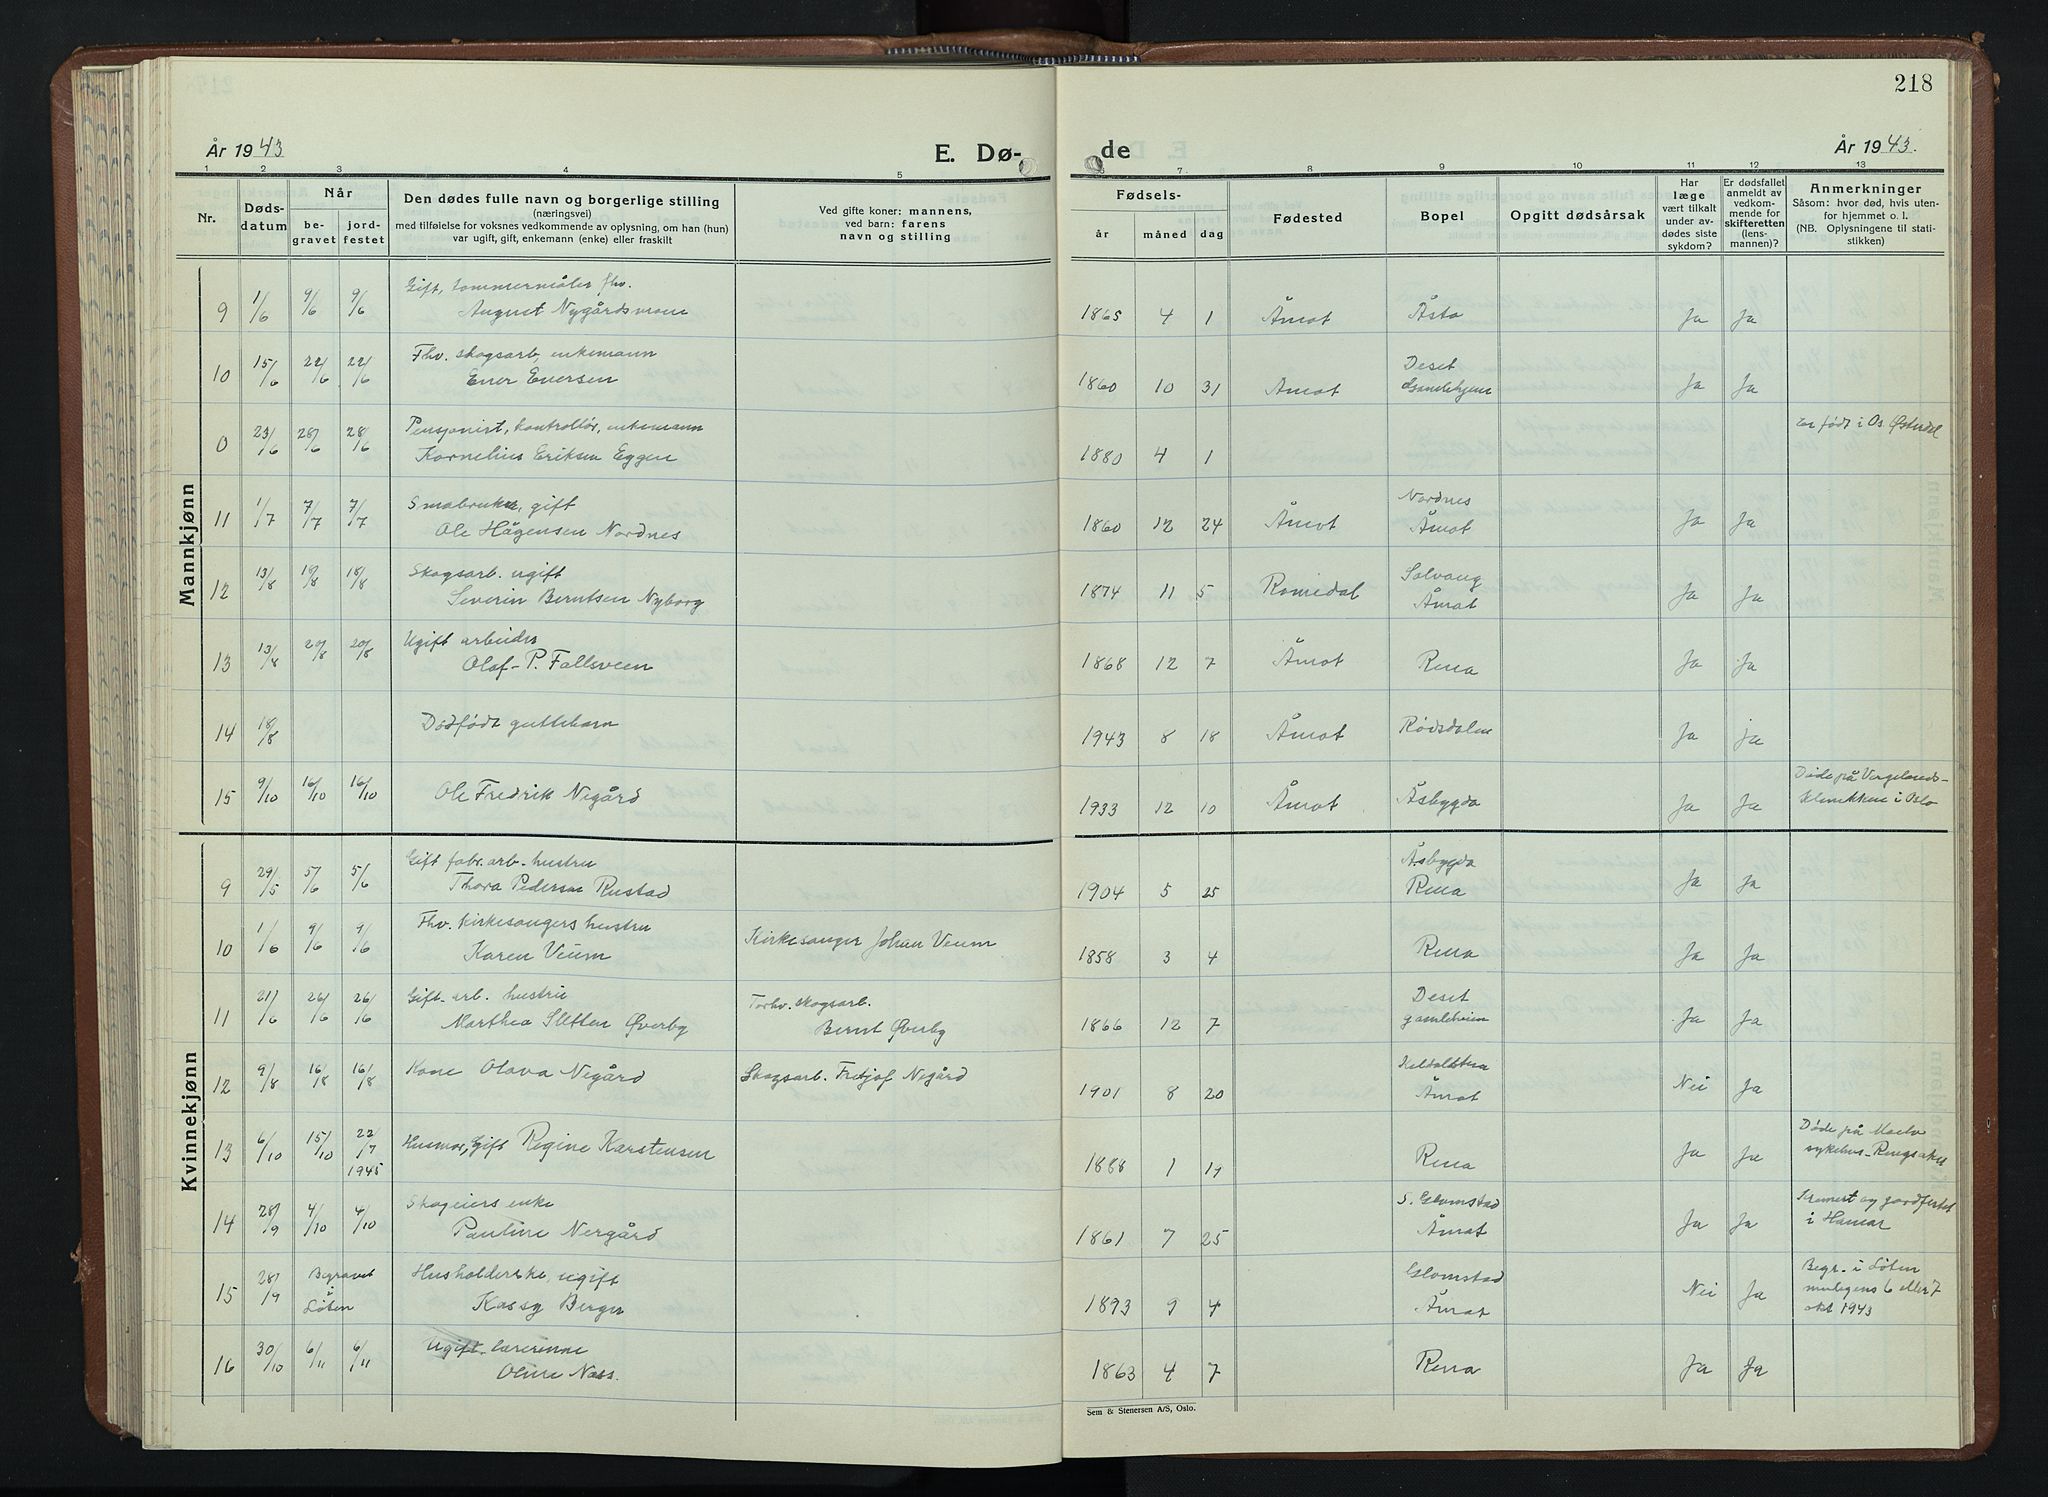 218
År 1943
E. Dø-
de
År 1943.
1 2 3 4 5 6 7. 8 9 10 11 12 13
Nr.
Døds-
datum
Når
be-
gravet
jord-
festet
Den dødes fulle navn og borgerlige stilling
(næringsvei)
med tilføielse for voksnes vedkommende av oplysning, om han (hun)
var ugift, gift, enkemann (enke) eller fraskilt
Ved gifte koner: mannens,
ved barn: farens
navn og stilling
Fødsels-
år måned dag
Fødested
Bopel
Opgitt dødsårsak
Har
læge
vært tilkalt
under av-
dødes siste
sykdom?
Er dødsfallet
anmeldt av
vedkom-
mende for
skifteretten
(lens-
mannen)?
Anmerkninger
Såsom: hvor død, hvis uten-
for hjemmet o. l.
(NB. Oplysningene til stati-
stikken)
Mannkjønn
Gift, tømmermåler fhv.
9 1/6 9/6 9/6 August Nygårdsmoen 1865 4 1 Åmot Åsta Ja Ja
Fhv. skogsarb, enkemann Deset
10 15/6 22/6 22/6 Ener Enersen 1860 10 31 Åmot Gamlehjem Ja Ja
Pensjonist, kontrollør, enkemann Er født i Os. Østerdal
0 23/6 28/6 28/6 Kornelius Eriksen Eggen 1880 4 1
Småbruker, gift Nordnes
11 1/7 7/7 7/7 Ole Hågensen Nordnes 1860 12 24 Åmot Åmot Ja Ja
Skogsarb. ugift Solvang
12 13/8 18/8 18/8 Severin Berntsen Nyborg 1874 11 5 Romedal Åmot Ja Ja
Ugift arbeider
13 13/8 20/8 20/8 Olaf P. Fallsveen 1868 12 7 Åmot Rena Ja Ja
14 18/8 Dødfødt guttebarn 1943 8 18 Åmot Rødsdalen Ja ja
Døde på Vergelands-
15 9/10 16/10 16/10 Ole Fredrik Negård 1933 12 10 Åmot Åsbygda Ja Ja klinikken i Oslo
Kvinnekjønn
Gift fabr. arb. hustru Åsbygda
9 29/5 5/6 5/6 Thora Pedersen Rustad 1904 5 25 Rena Ja Ja
Fhv. Kirkesangers hustru
10 1/6 9/6 9/6 Karen Veum Kirkesanger Johan Veum 1858 3 4 Rena Ja Ja
Gift arb. hustru Forhv. skogsarb. Deset
11 21/6 26/6 26/6 Marthea Sletten Øverby Bernt Øverby 1866 12 7 gamleheim Ja Ja
12 9/8 16/8 16/8 Kone Olava Negård Skogsarb. Fretjof Negård 1901 8 20 Åmot Nei Ja
Døde på Moelv
13 6/10 15/10 22/7 1945 Husmor, Gift Regine Karstensen 1888 1 Rena Ja Ja sykehus - Ringsaker
Skogeiers enke S. Glomstad Kremert og jordfestet
14 28/9 4/10 4/10 Pauline Nergård 1861 7 25 Åmot Ja Ja i Hamar
Husholderske, ugift Glomstad Begr. i Løten
15 28/9 Begravet i Løten Kassy Berger 1893 9 4 Åmot Nei Ja muligens 6 eller 7
okt 1943
Ugift lærerinne
16 30/10 6/11 6/11 Oline Næss. 1863 4 7 Rena Ja Ja
Sem & Stenersen A/S, Oslo.